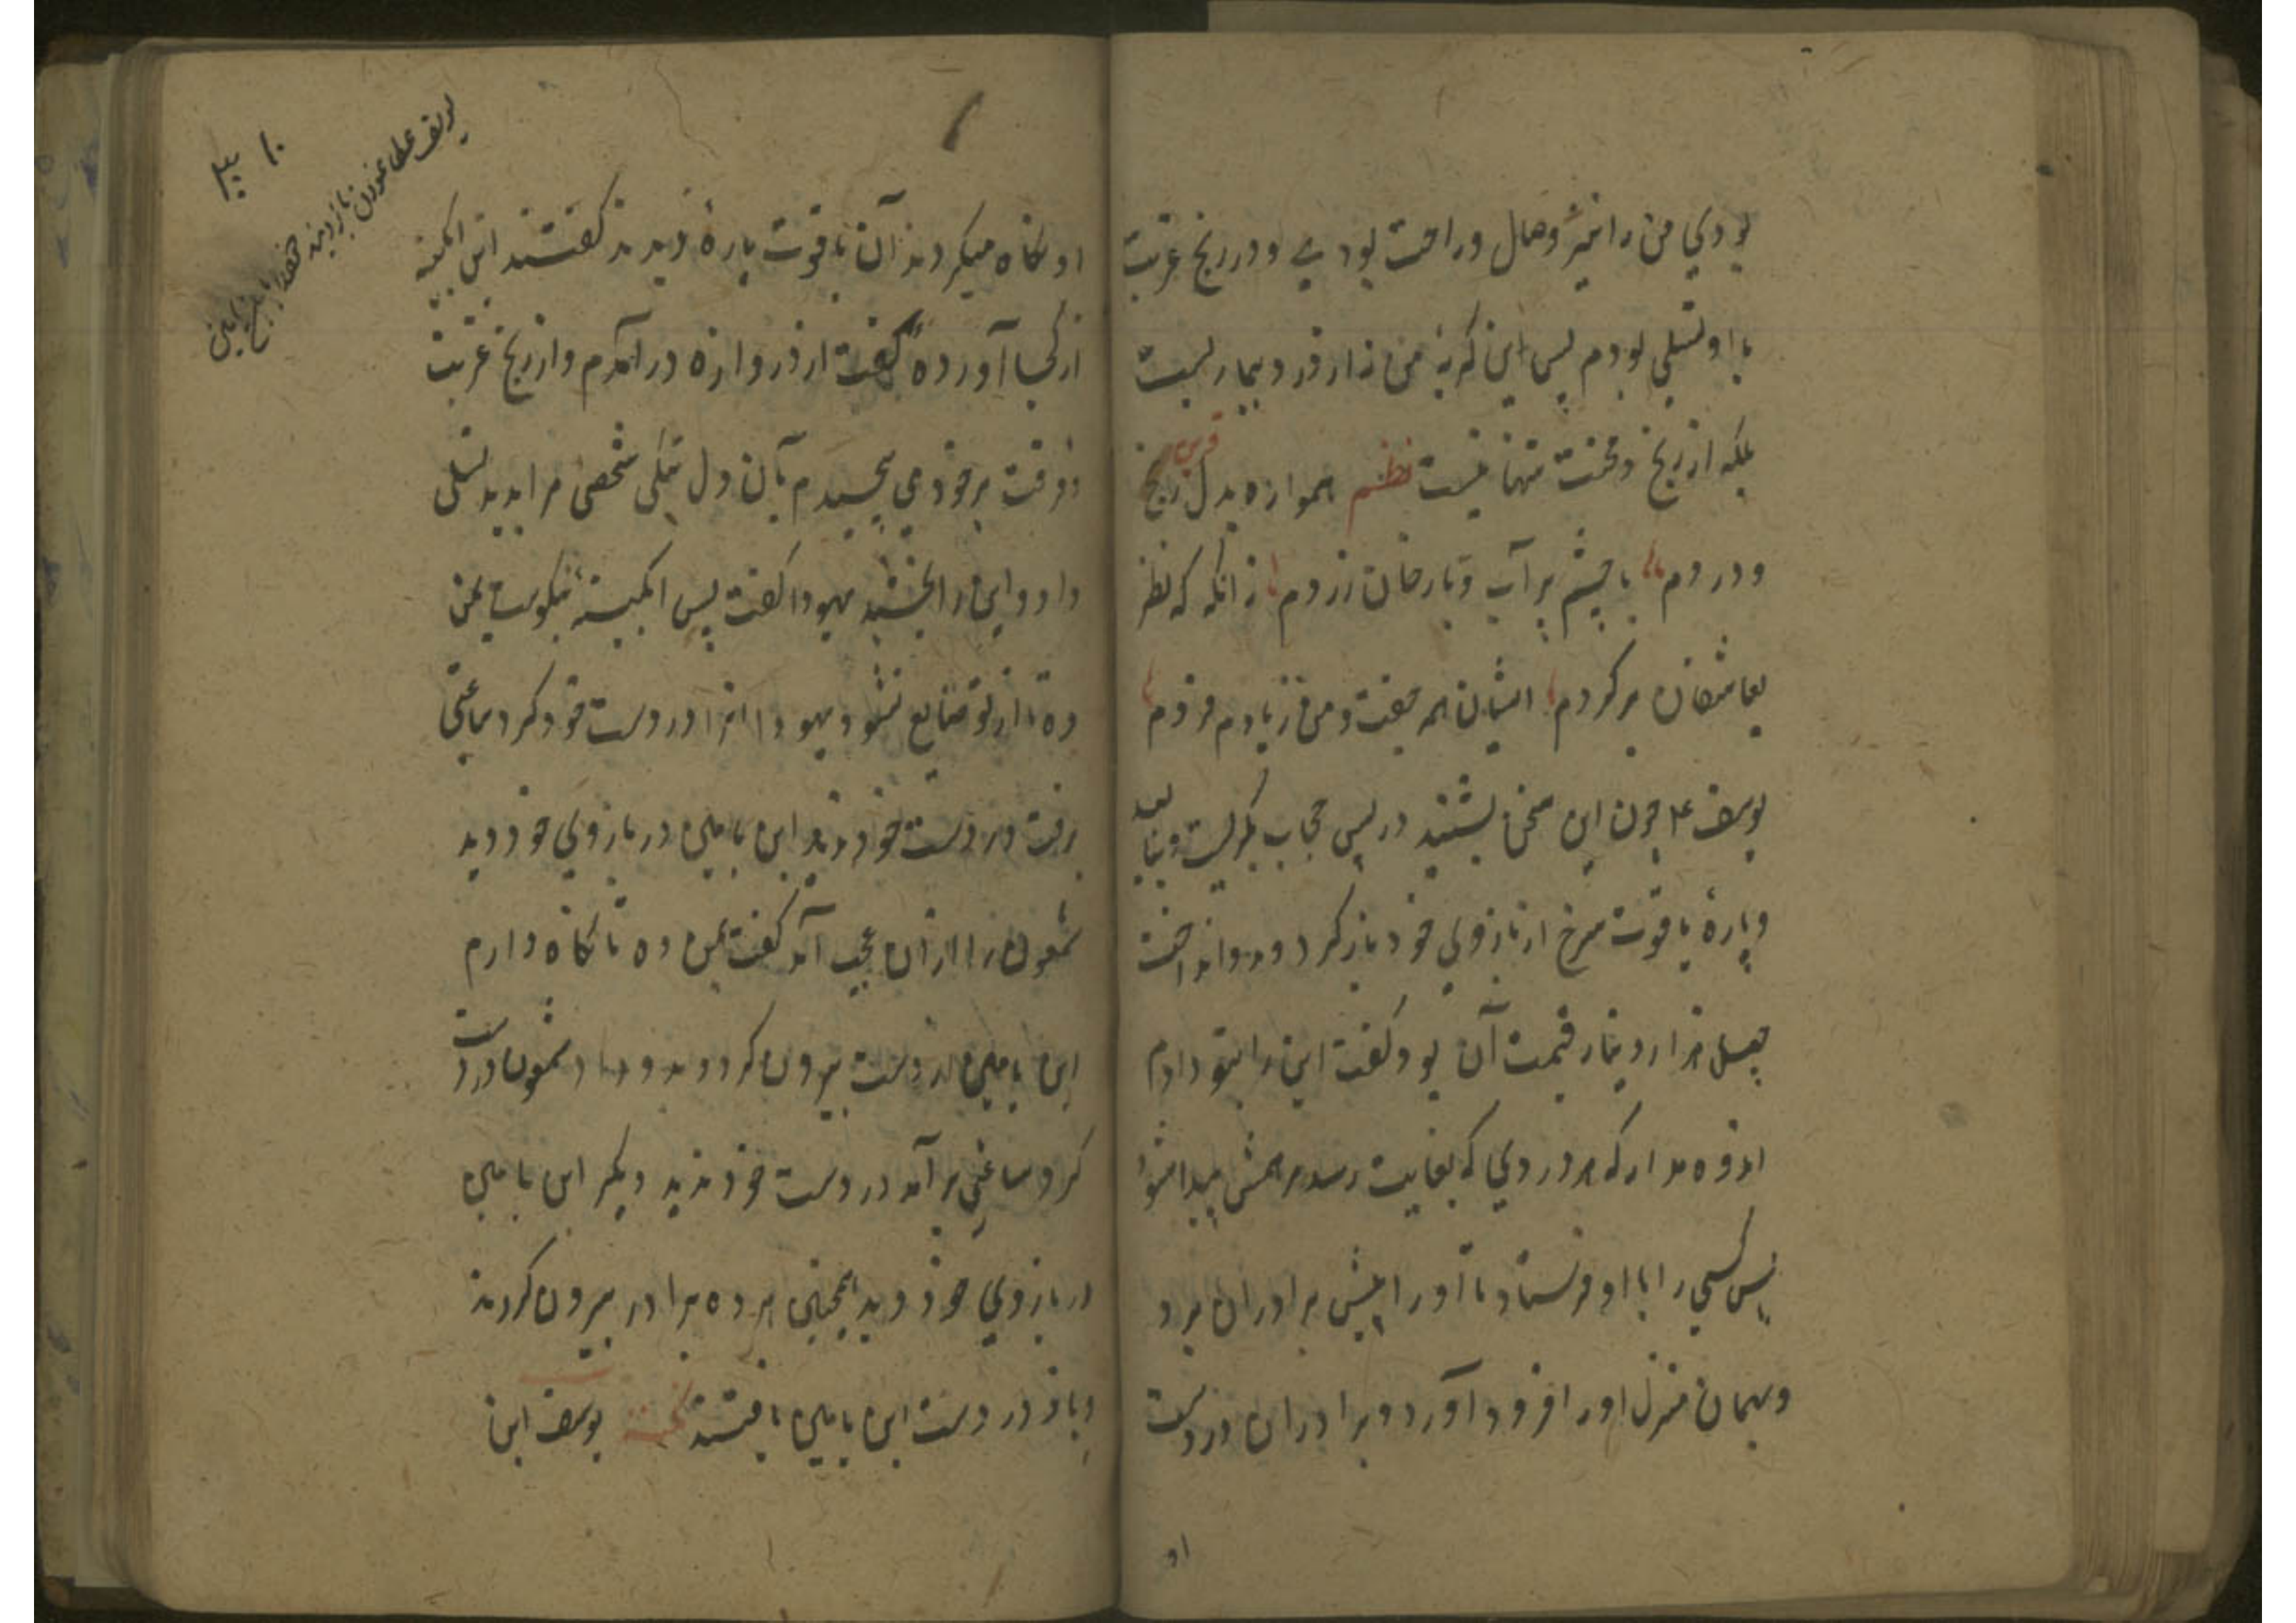 بودي من را نیز وصال و راحت بودے و در رنج غربت
با او تسلی بودم پس این کریهٔ من نه از درد بیماریست
بلکه از رنج و محنت تنهائیست نظم همواره بدل رنج
قرین
و دردم با چشم پر آب و با رخان زردم زانکه که نظر
بعاشقان برکردم ایشان همه جفت و من ز یارم فردم
یوسف ع‍م چون این سخن بشنید در پس حجاب بکریست و
و پارهٔ یاقوت سرخ از بازوي خود باز کرد و بدو انداخت
چهل هزار دینار قیمت آن بود کفت این را بتو دادم
اندوه مدار که هر دردي که بغایت رسد مرهمش پیدا شود
پس کسي را با او فرستاد تا او را پیش برادران برد
و بهمان منزل او را فرود آورد و برادران در دست
او
او نکاه میکردند آن یاقوت پاره دیدند کفتند این ابکینه
از کجا آورده کفت از دروازه در آمدم و از رنج غربت
و فرقت بر خود می پیچیدم بآن دل تنکی شخصی مرا بدید تسلی
داد و این را بخشید یهودا کفت پس ابکینهٔ نیکوست بمن
ده تا از تو ضایع نشود یهودا انرا در دست خود کرد ساعتی
برفت در دست خود ندید ابن یامین در بازوي خود دید
شمعون را از ان عجب آمد کفت بمن ده تا نکاه دارم
ابن یامین از دست بیرون کرد و بدو داد شمعون در دست
کرد ساعتي بر آمد در دست خود ندید دیکر ابن یامین
در بازوي خود دید همچنین هر ده برادر بیرون کردند
و باز در دست ابن یامین یافتند نکته یوسف این